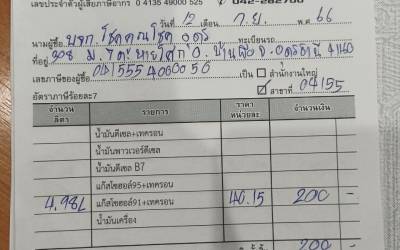 เลขประจำตัวผู้เสียภาษีอากร 0 4135 49000 525 042-282700
วันที่ 12 เดือน ก.ย. พ.ศ. 66
นามผู้ซื้อ บจก. โชคคูณโชค อุดร ทะเบียนรถ
ที่อยู่ 308 ม.7 ต. อ. บ้านผือ จ. อุดรธานี 41160
เลขภาษีของผู้ซื้อ เป็น สำนักงานใหญ่
อัตราภาษีร้อยละ7 สาขาที่ 04155
จำนวน ลิตร รายการ ราคา หน่วยละ จำนวนเงิน
น้ำมันดีเซล+เทครอน
น้ำมันพาวเวอร์ดีเซล
น้ำมันดีเซล B7
แก๊สโซฮอล์95+เทครอน
4.98L แก๊สโซฮอล์91+เทครอน 40.15 200 -
น้ำมันเครื่อง
200 -